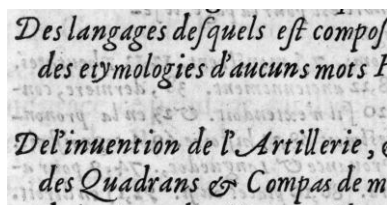 Des langages deſquels eſt compoſ
des etymologies d'aucuns mots F
De l'inuention de l'Artillerie,
des Quadrans & Compas de m